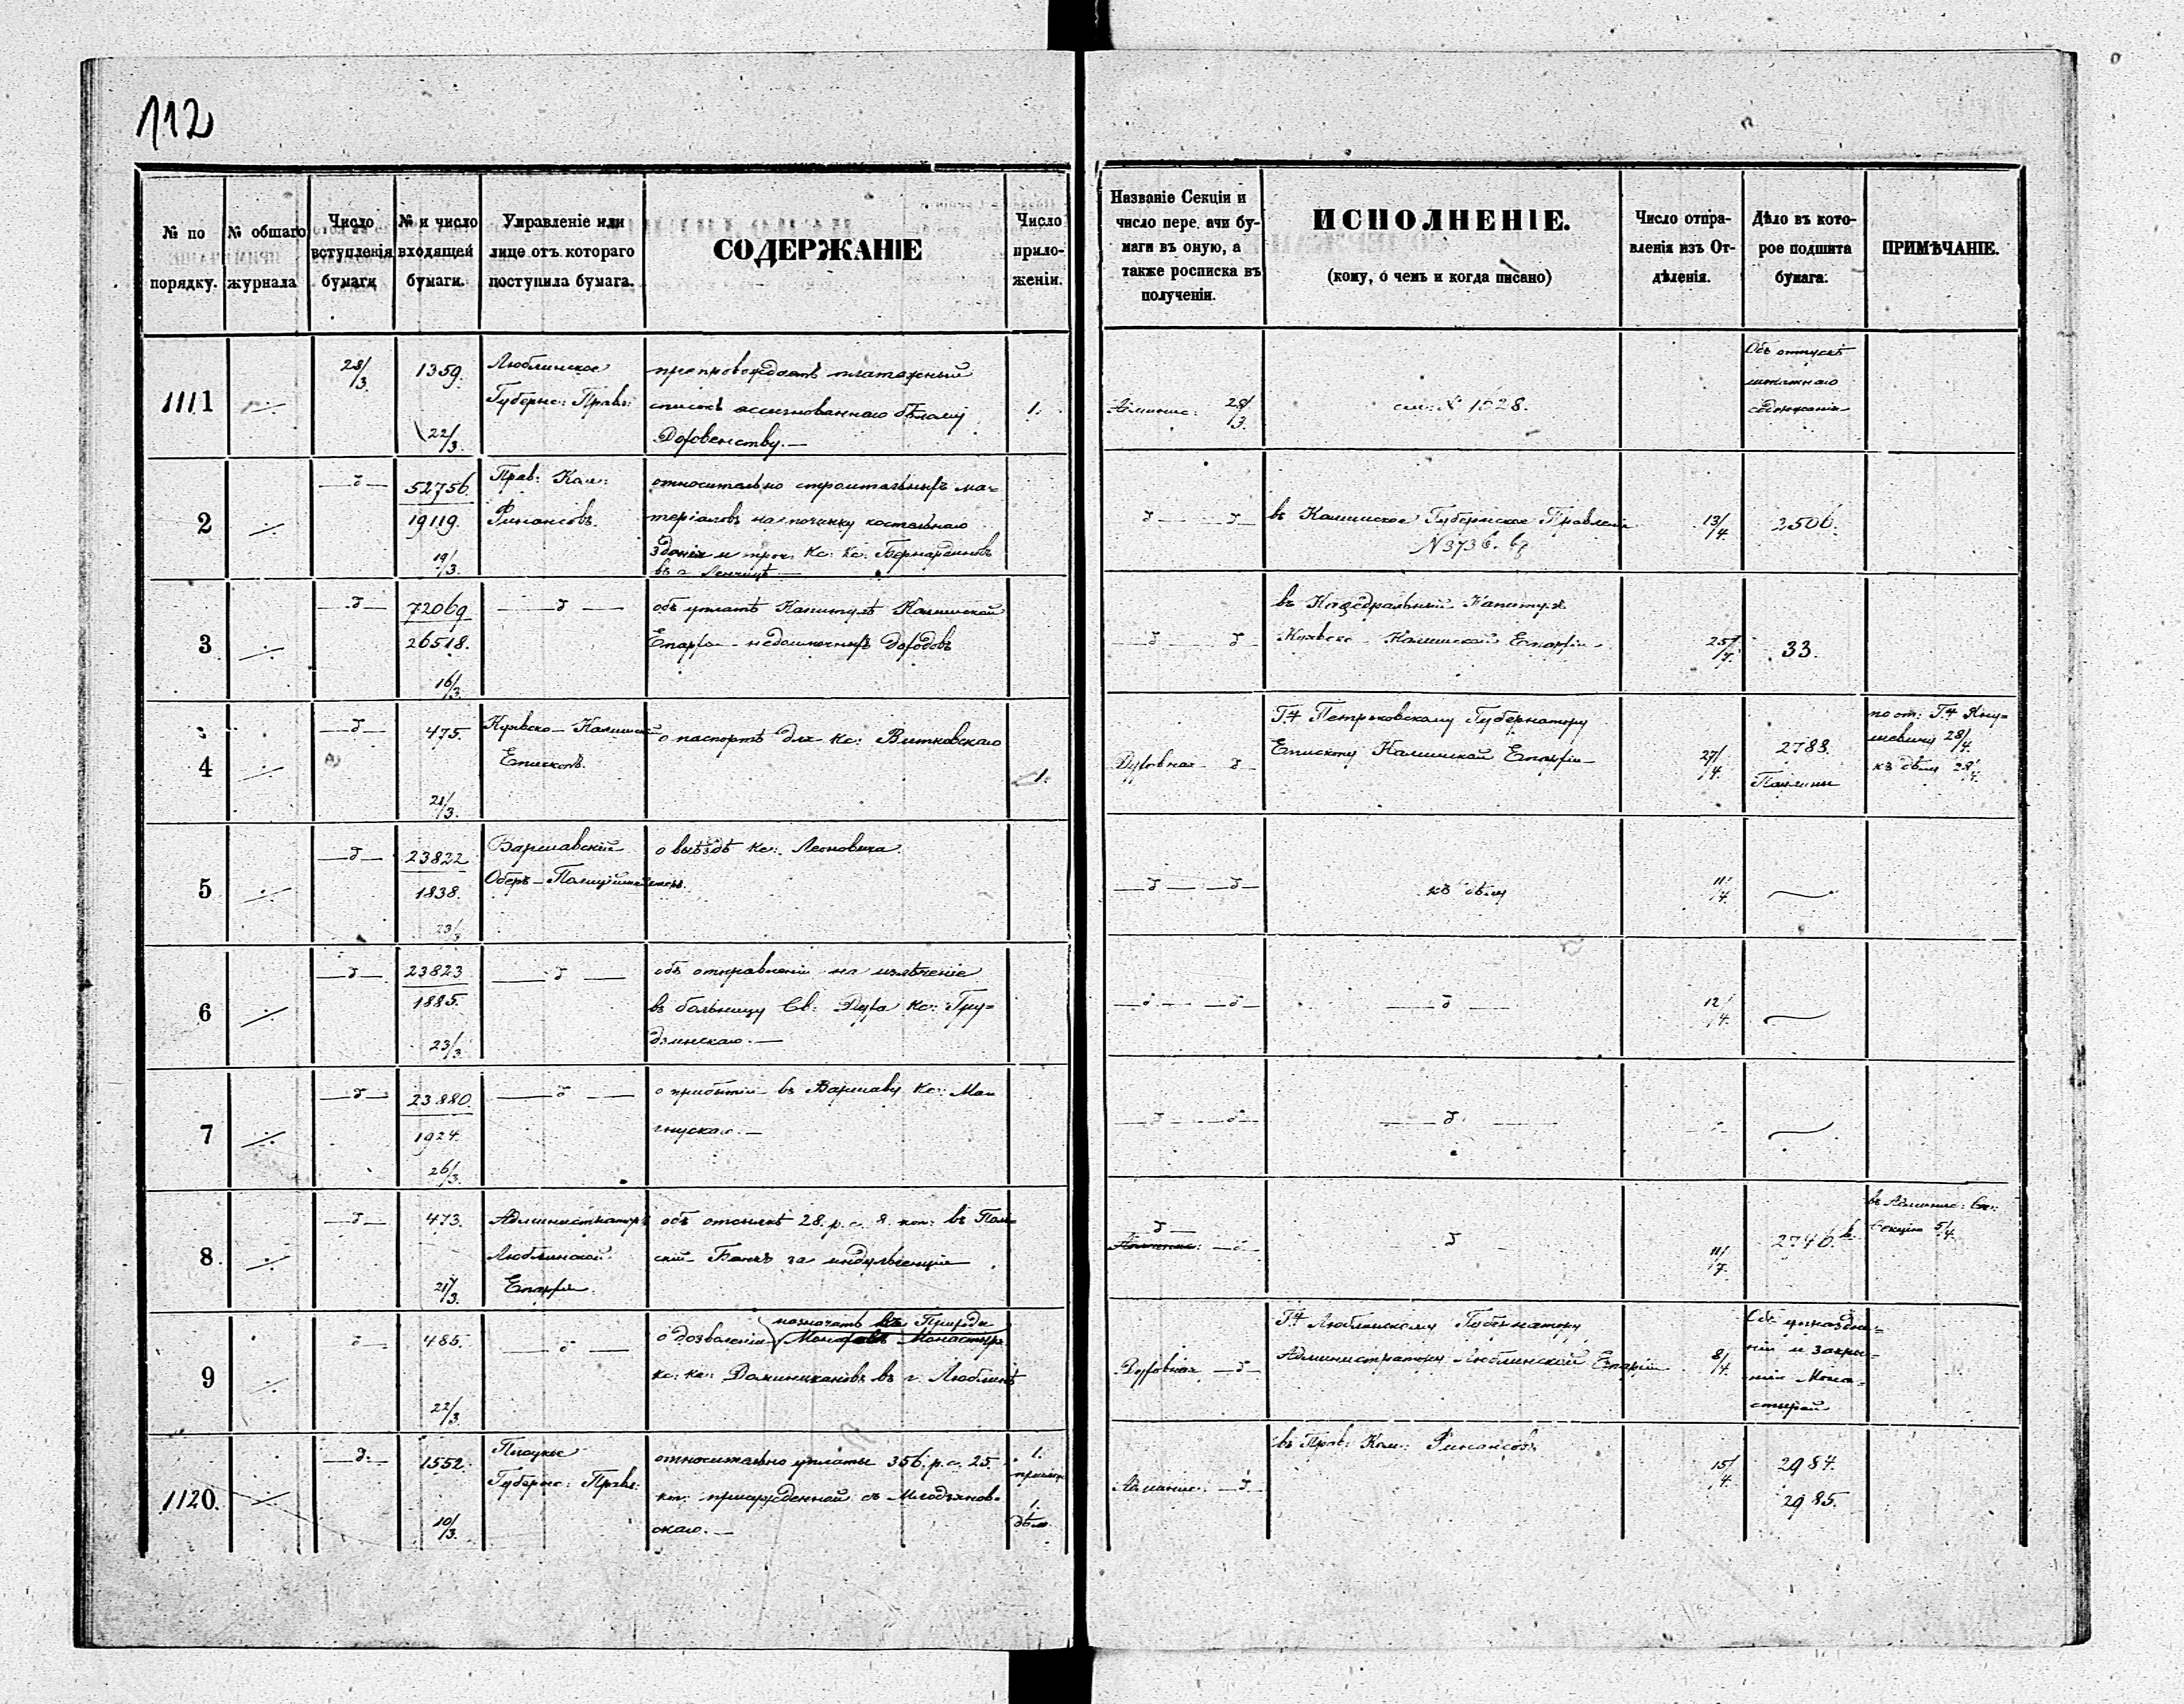 112
№ по порядку.
№ общаго журнала
Число вступленія бумаги
№ и число входящей бумаги.
Управленіе или лице отъ котораго поступила бумага.
СОДЕРЖАНІЕ
Число приложеніи.
Названіе Секціи и число пере ачи бумаги въ оную, а также росписка въ полученіи.
ИСПОЛНЕНІЕ.
(кому, о чемъ и когда писано)
Число отправленія изъ Отдѣленія.
Дѣло въ которое подшита бумага.
ПРИМѢЧАНІЕ.
1111
28/3
1359.
22/3.
Люблинское
Губернс: Правл:
препровождаетъ платежный
списокъ ассигнованнаго бѣлому
Духовенству.—
1.
Админис: 28/3.
см: № 1028.
Объ отпускѣ
штатнаго
содержанія
2
—д—
52756.
19119.
19/3.
Прав: Ком:
Финансовъ.
относительно строительныхъ ма=
теріаловъ на починку костельнаго
зданія и проч. Кс: Кс: Бернардиновъ
въ г. Ленчицѣ.—
д — д
въ Калишское Губернское Правленіе
№ 3736.
13/4.
2506.
3
—д—
72069
26518.
16/3.
—д—
объ уплатѣ Капитулѣ Калишской
Епархіи недоимочныхъ доходовъ
д д
въ Кафедральный Капитулъ
Куявско-Калишской Епархіи
25/7.
33.
4
—д—
475.
21/3.
Куявско-Калишскій
Епископъ.
о паспортѣ для Кс: Витковскаго
1.
Духовная д
ГЧ Петроковскому Губернатору
Епископу Калишской Епархіи
27/4.
2788.
Паулины
по от: ГЧ Яну=
шевичу 28/4.
къ дѣлу 28/4.
5
—д—
23822
1838.
23/3
Варшавскій
Оберъ-Полицiймейстеръ.
о выѣздѣ Кс: Леоновича.
—д— —д—
къ дѣлу
11/4.
6
—д—
23823
1885.
23/3
—д—
объ отправленіи на излѣченіе
въ больницу Св: Духа Кс: Гру=
дзинскаго.—
—д— —д—
—д—
12/4.
7
—д—
23880.
1924.
26/3.
—д—
о прибытіи въ Варшаву Кс: Ма
гнускаго.—
—д— —д—
—д—
8.
—д—
473.
21/3.
Администраторъ
Люблинской
Епархіи.
объ отсылкѣ 28. р. с. 8. коп: въ Поль=
скій Банкъ за индульгенціи
д
Админис: —д—
д
11/7.
2746.
въ Админис:
Секцію 5/4.
9
—д—
485.
22/3.
—д—
назначать
о дозволеніи Монастыря
кс: кс: Доминикановъ въ г. Люблинѣ
Духовная —д—
ГЧ Люблинскому Губернатору
Администратору Люблинской Епархіи
8/4.
Объ упраздне=
ніи и закры=
тіи Мона=
стырей
1120.
—д.—
1552.
10/3.
Плоцкое
Губернс: Правл:
относительно уплаты 356. р. с. 25.
коп: присужденной съ Млодзянов=
скаго.—
1.
прилож
1.
дѣло
Админис: —д—
въ Прав: Ком: Финансовъ
15/4.
2984.
2985.